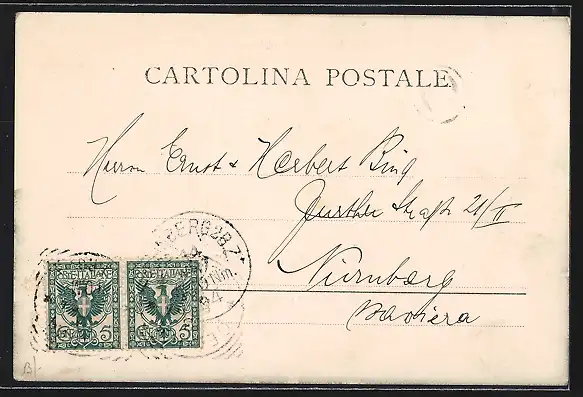 CARTOLINA POSTALE
Herren Ernst & Herbert Bing
Further Straße 21/II
Nürnberg
Baviera
POSTE ITALIANE POSTE ITALIANE
5 5
B/-